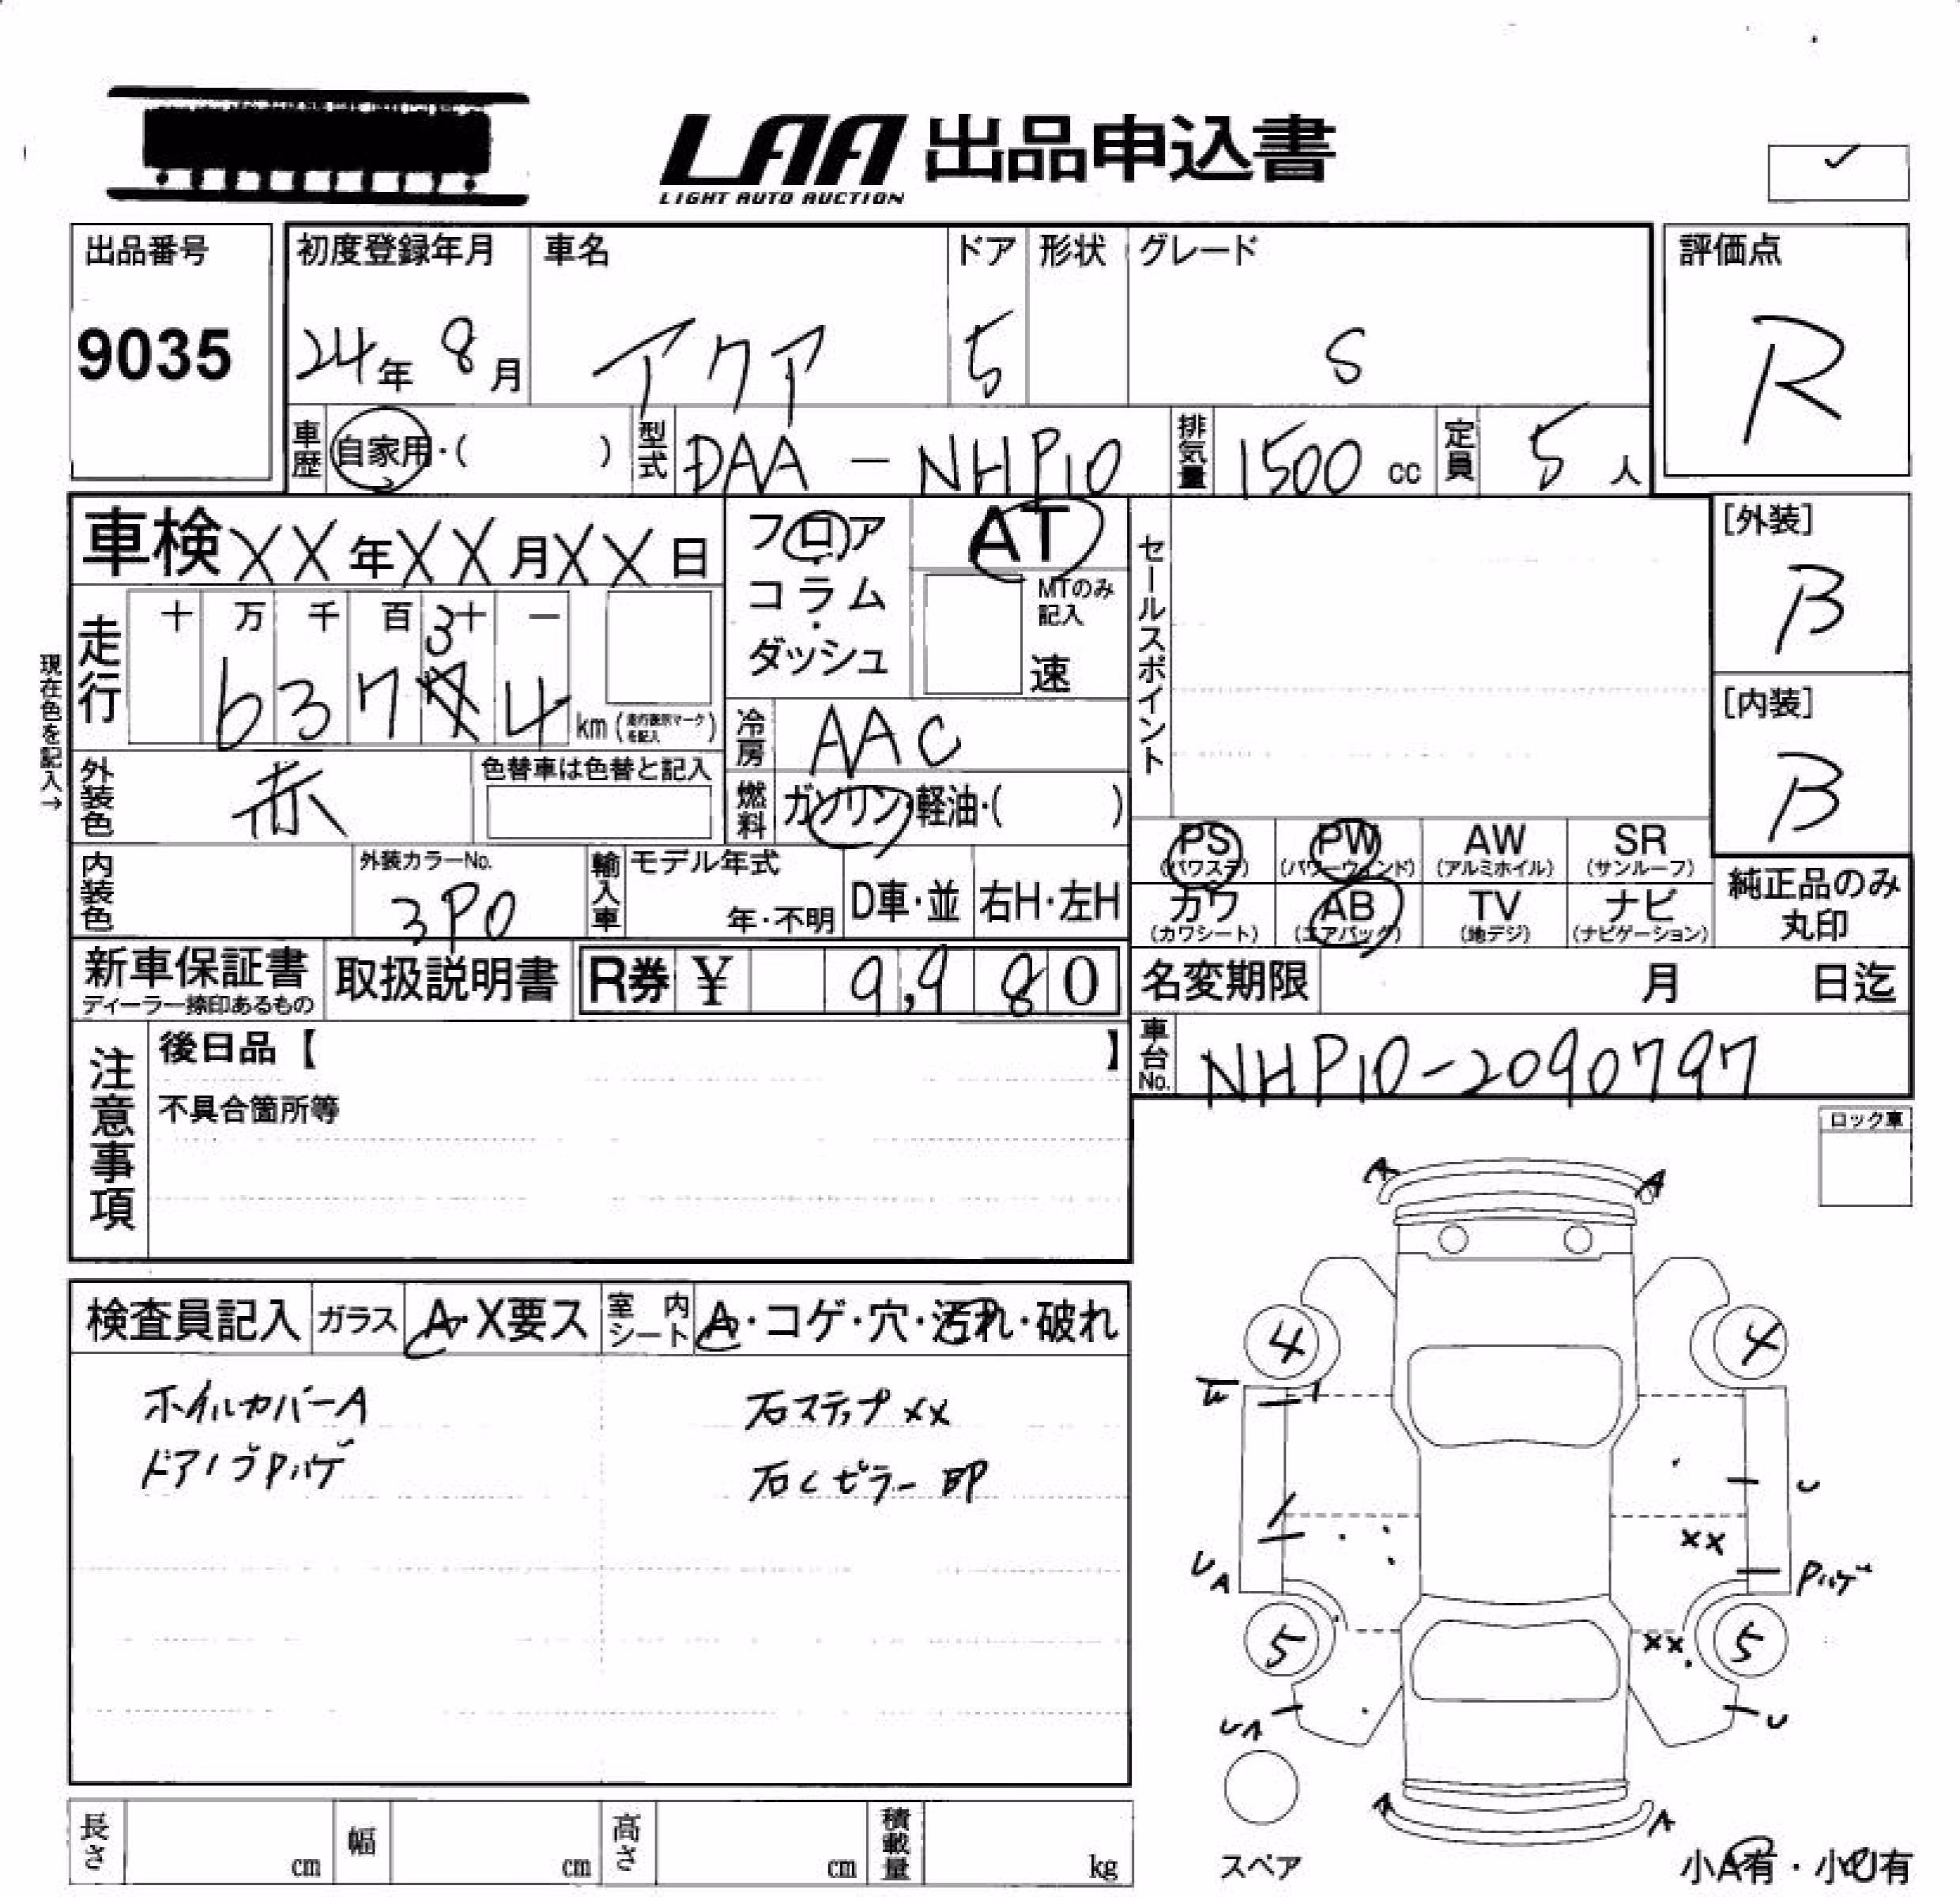 LAA 出品申込書
LIGHT AUTO AUCTION
✓
出品番号
9035
初度登録年月
24年 8月
車名
アクア
ドア
5
形状
グレード
S
評価点
R
車歴 自家用・( )
型式 DAA - NHP10
排気量 1500 cc
定員 5 人
車検 XX年XX月XX日
フロア・コラム・ダッシュ
AT
MTのみ記入
速
セールスポイント
[外装]
B
[内装]
B
現在色を記入→
走行 十 万 千 百 十 一
3
63774 km (走行表示マークを記入)
冷房 AAC
外装色 赤
色替車は色替と記入
燃料 ガソリン・軽油・( )
内装色
外装カラーNo.
3P0
輸入車 モデル年式
年・不明
D車・並
右H・左H
PS (パワステ)
PW (パワーウィンド)
AW (アルミホイル)
SR (サンルーフ)
カワ (カワシート)
AB (エアバッグ)
TV (地デジ)
ナビ (ナビゲーション)
純正品のみ丸印
新車保証書
ディーラー捺印あるもの
取扱説明書
R券 ¥ 9,980
名変期限 月 日迄
車台No. NHP10-2090797
注意事項
後日品【 】
不具合箇所等
ロック車
検査員記入
ガラス A・X要ス
室内シート A・コゲ・穴・汚れ・破れ
ホイルカバーA
ドアノブPハゲ
右ステップXX
右Cピラー 即
A A
4 4
U
XX
UA
Pハゲ
5 5
XX
UA U
A A
スペア
小A有・小U有
長さ cm
幅 cm
高さ cm
積載量 kg